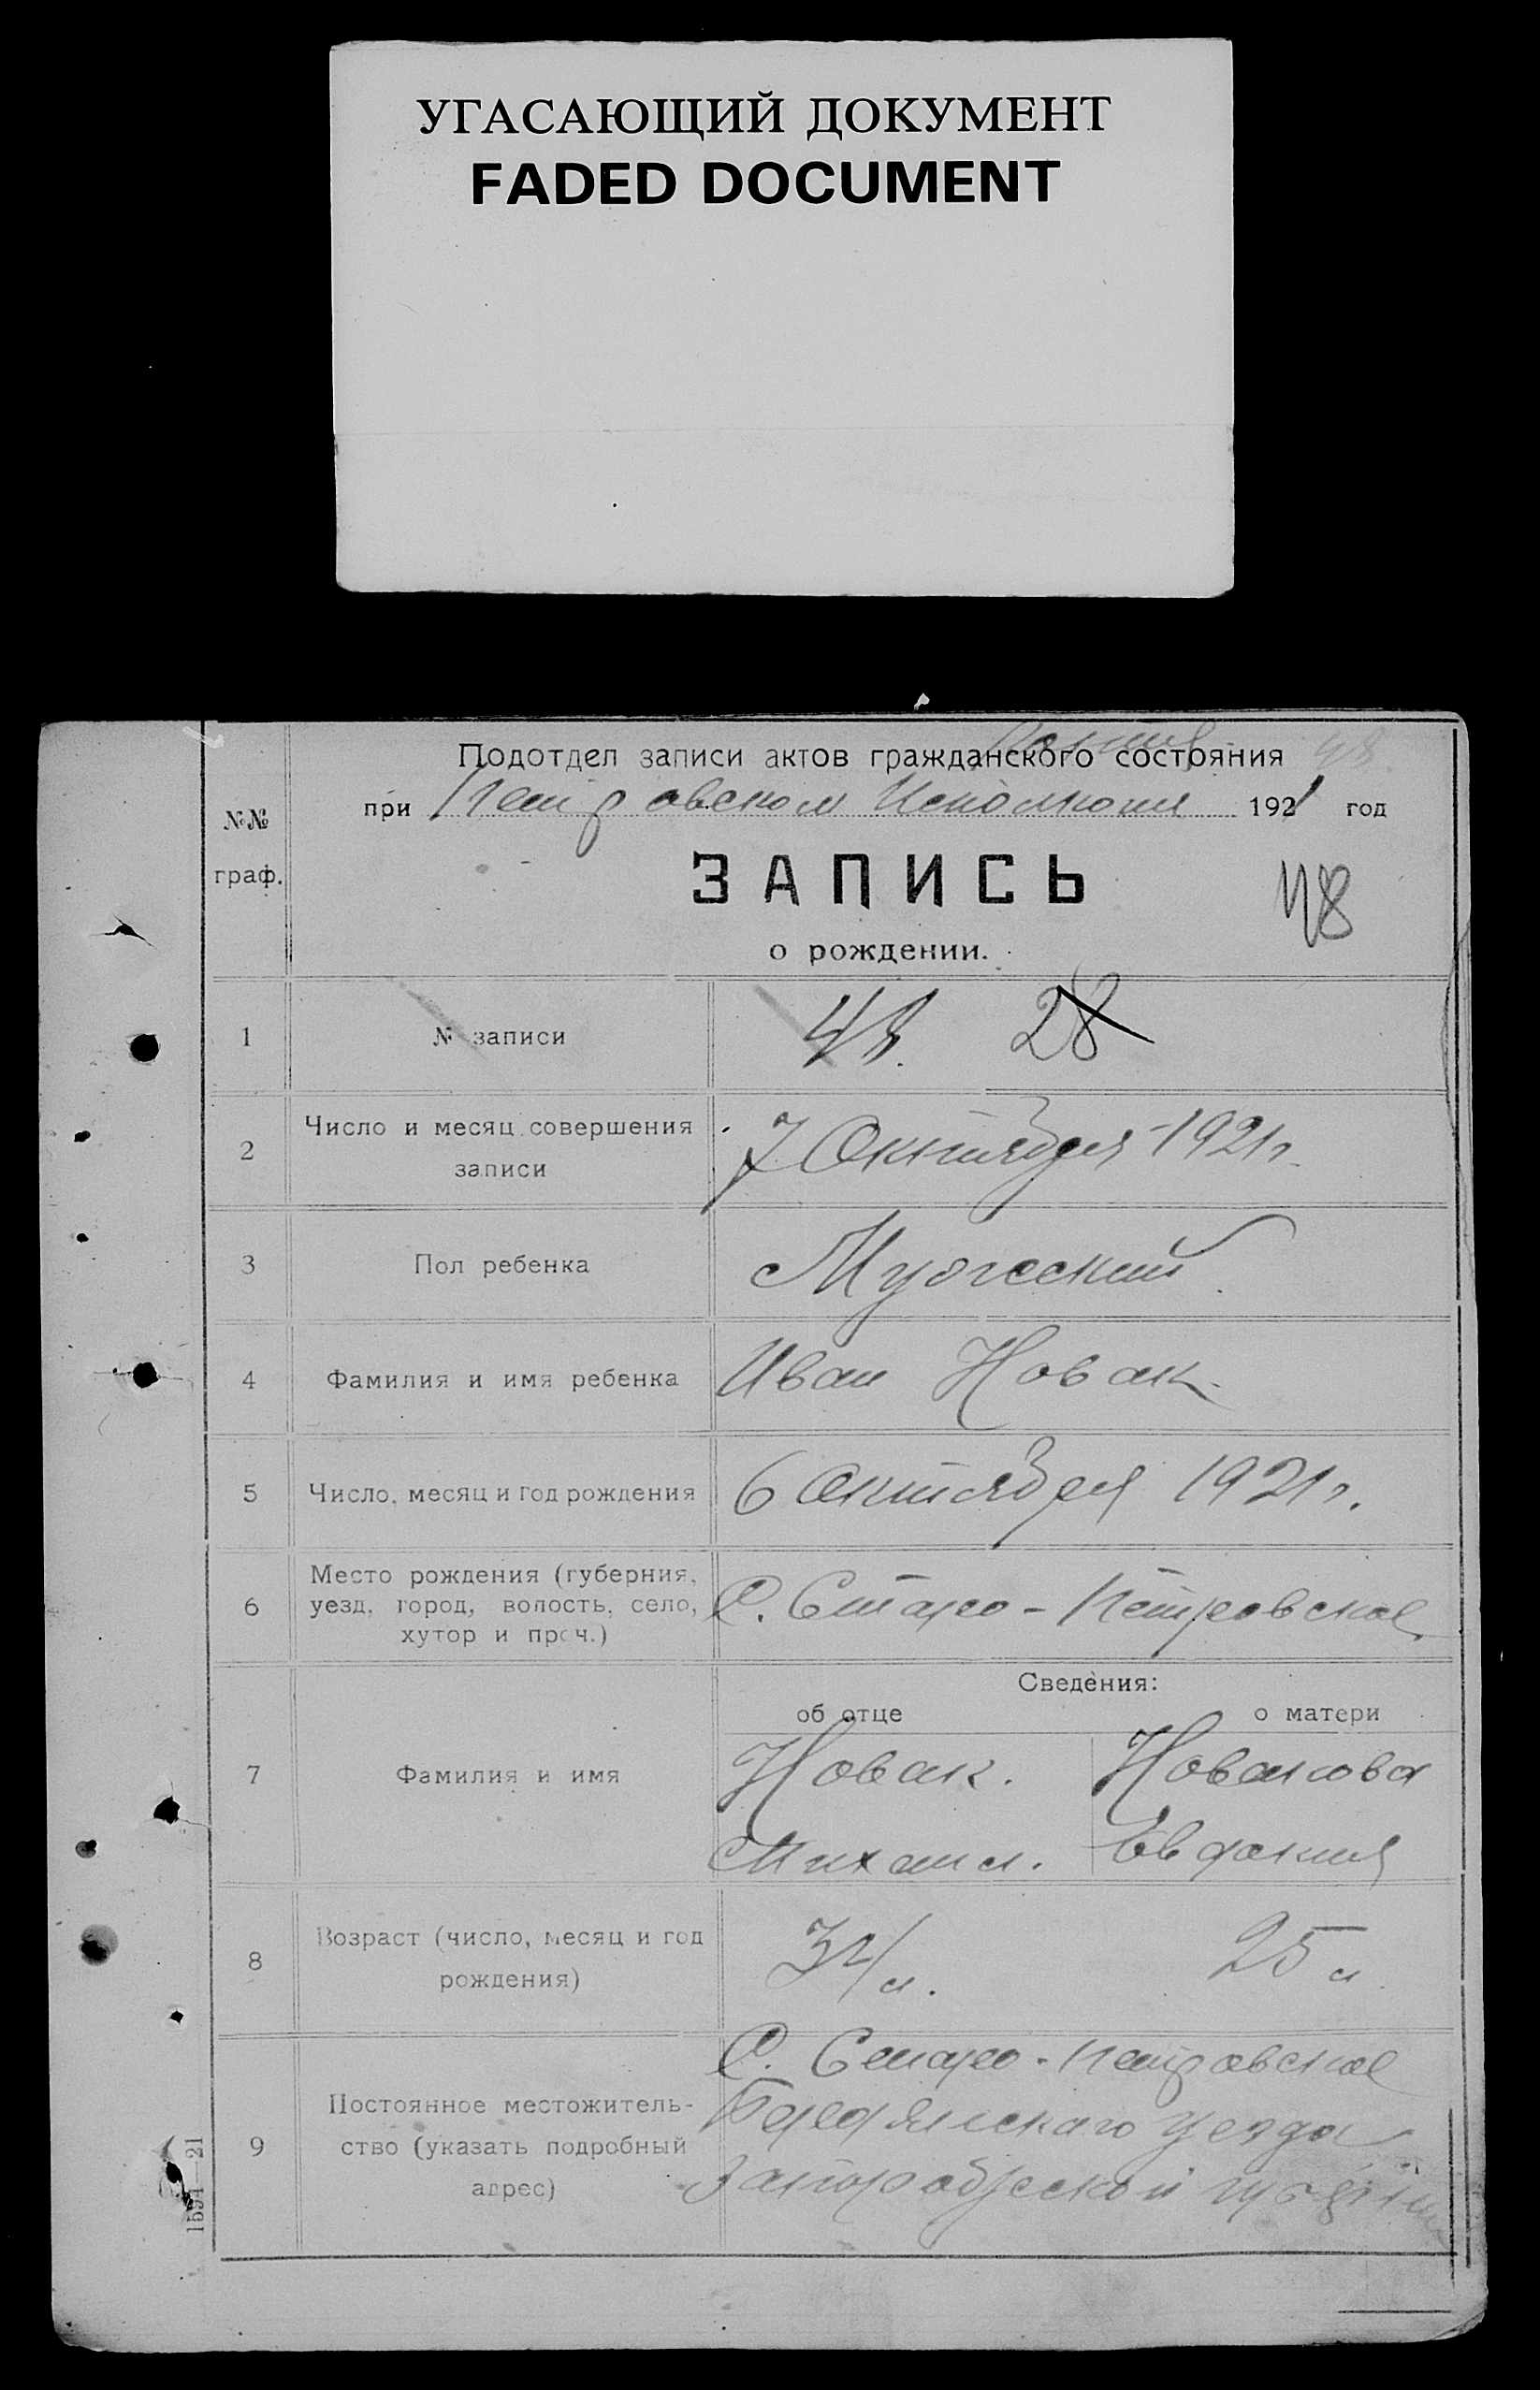 УГАСАЮЩИЙ ДОКУМЕНТ
FADED DOCUMENT
Подотдел записи актов гражданского состояния
при Петровском Исполкоме 1921 год
№№
граф.
ЗАПИСЬ
о рождении.
48
1 № записи 48. 28
2 Число и месяц совершения
записи
7 Октября 1921 г.
3 Пол ребенка Мужеский
4 Фамилия и имя ребенка Иван Новак
5 Число, месяц и год рождения 6 Октября 1921 г.
6 Место рождения (губерния,
уезд, город, волость, село,
хутор и проч.)
С. Старо-Петровское
Сведения:
об отце о матери
7 Фамилия и имя
Новак. Новакова
Михаил. Евдокия
8 Возраст (число, месяц и год
рождения)
34 л. 25 л
9 Постоянное местожитель-
ство (указать подробный
адрес)
С. Старо-Петровское
Бердянскаго уезда
1594—21